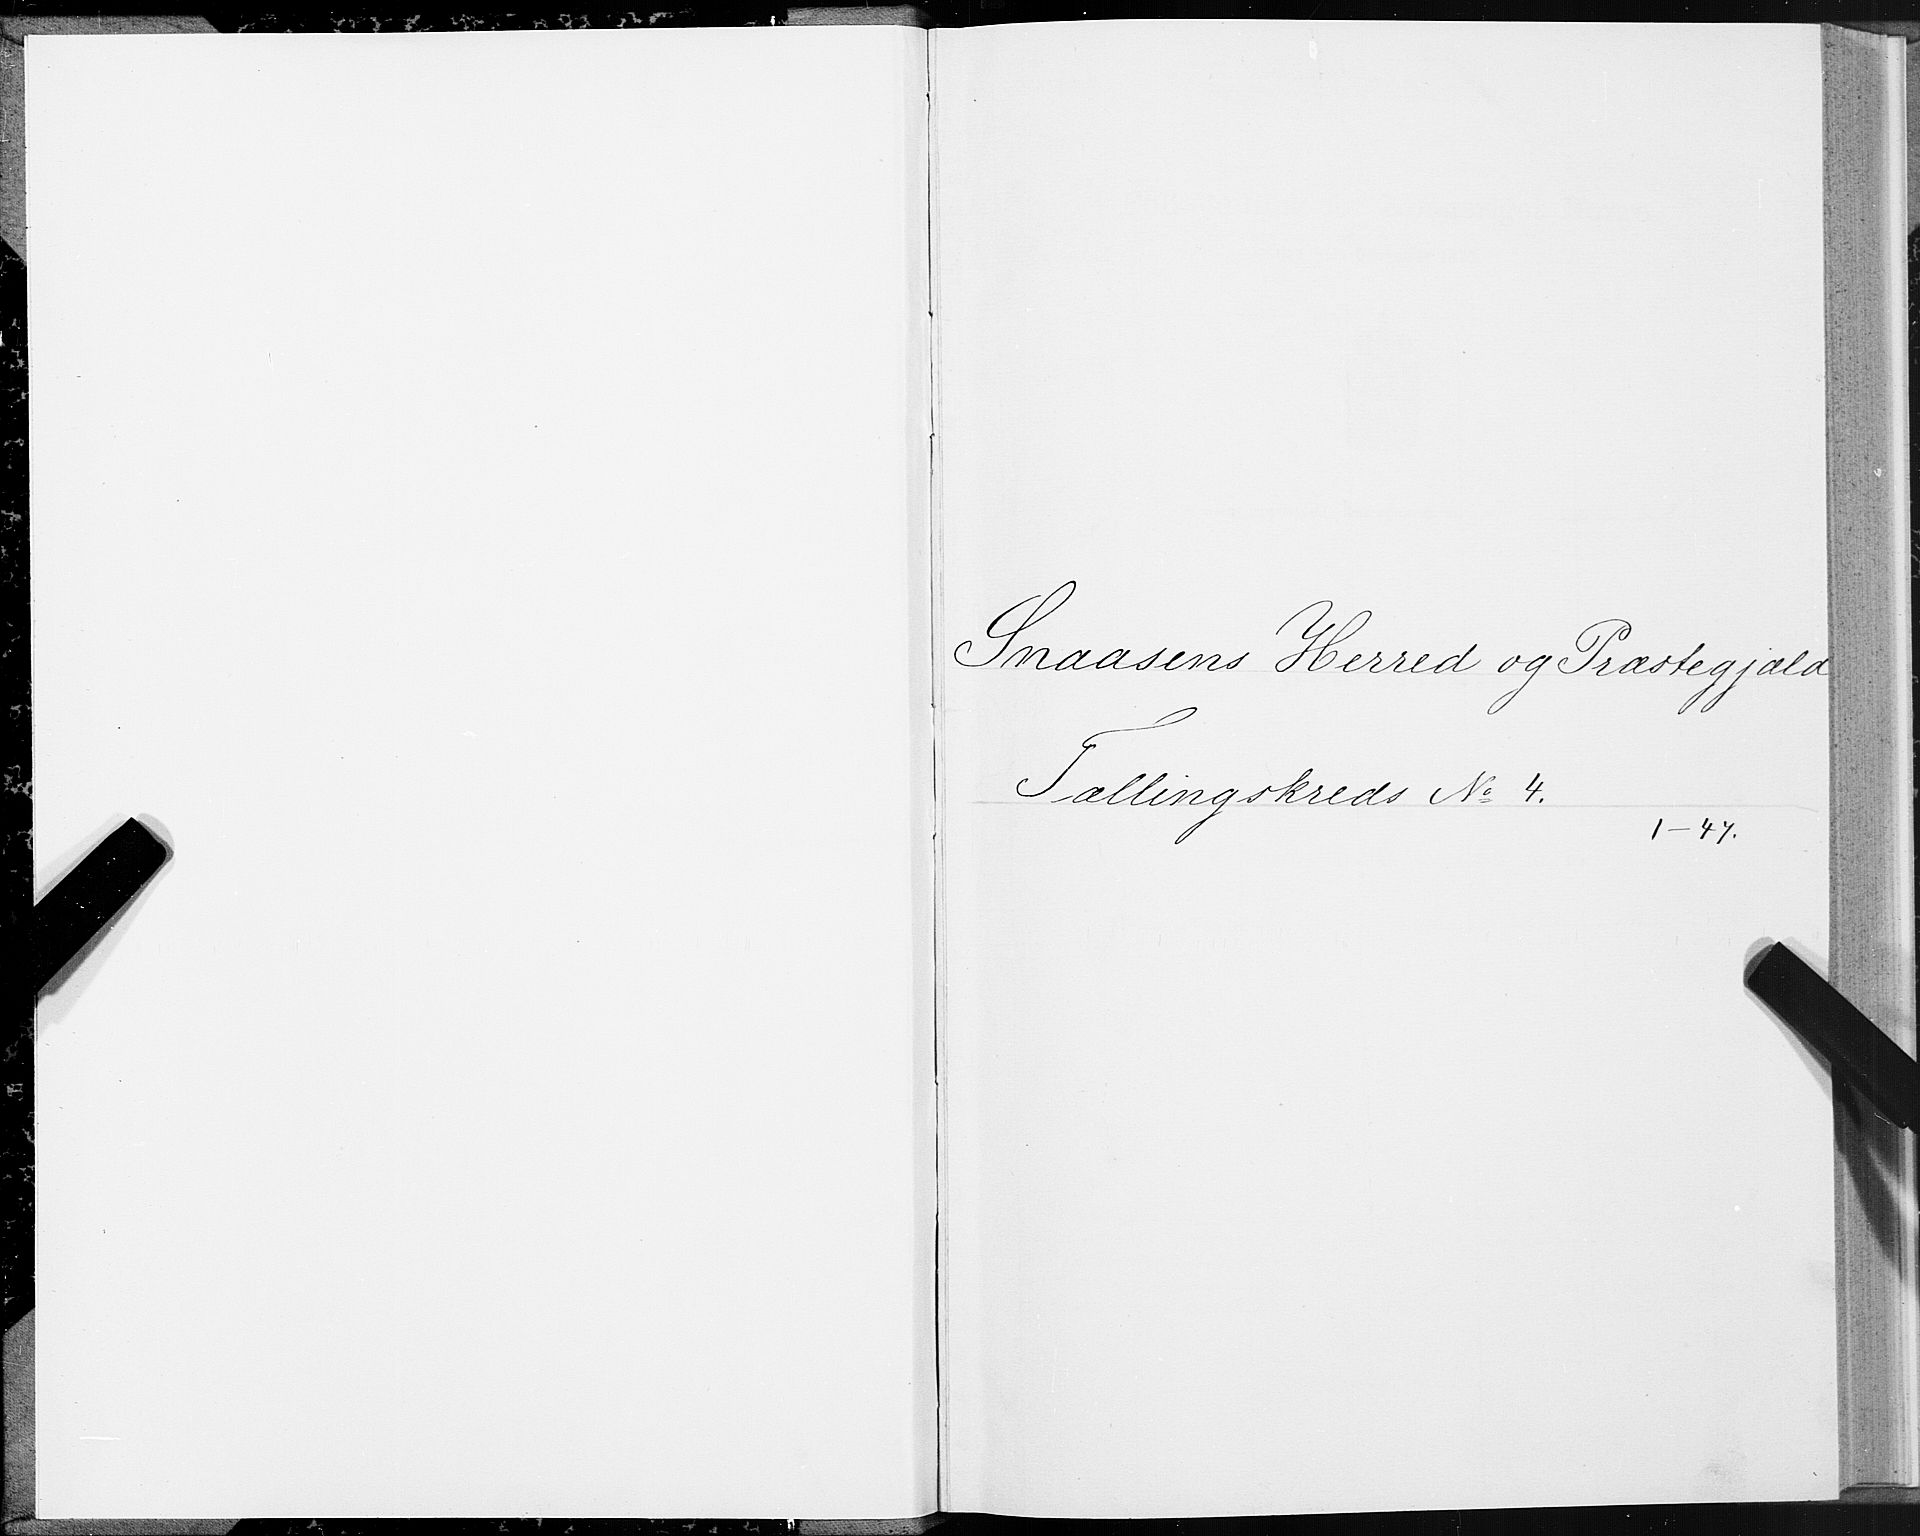 Snaasens Herred og Præstegjæld
Tællingskreds No 4.
1-47.